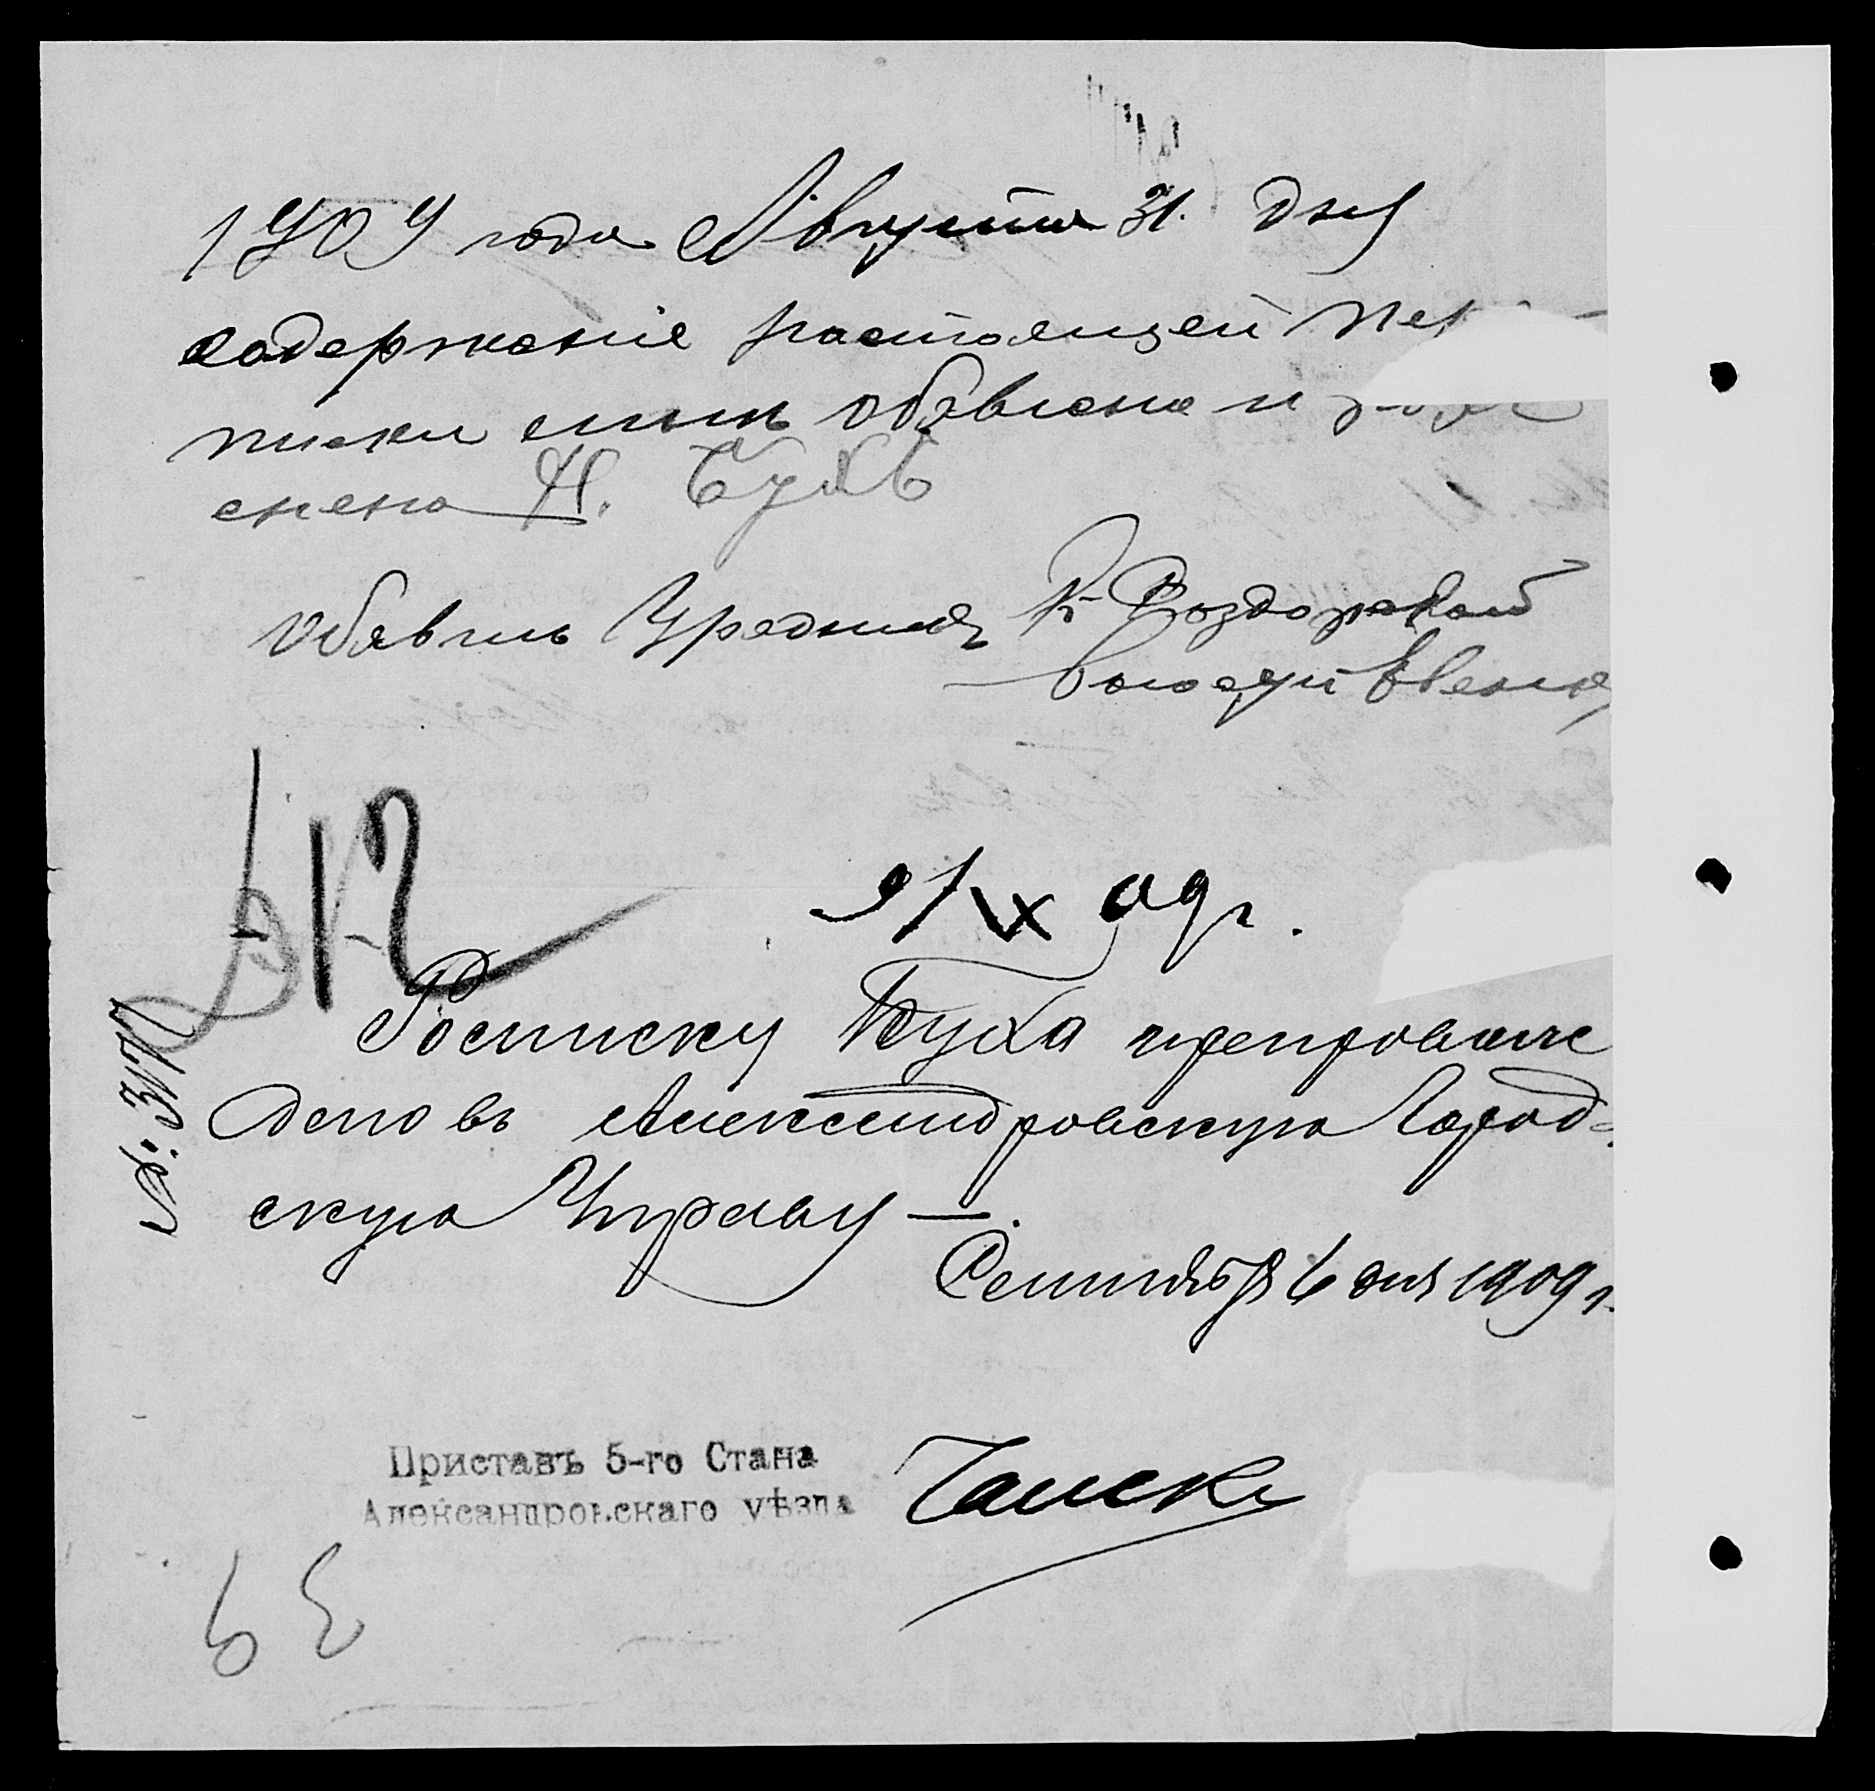 1909 года Августа 31. дня
содержаніе настоящей пе
писки мнѣ объявлено и
снено Н. Бухъ
Объявилъ Урядникъ
9/IX 09 г.
Росписку Буха препровож
дено въ Александровскую Город-
скую Управу —.
Сентября 6 дня 1909 г.
Приставъ 5-го Стана
Александровскаго уѣзда